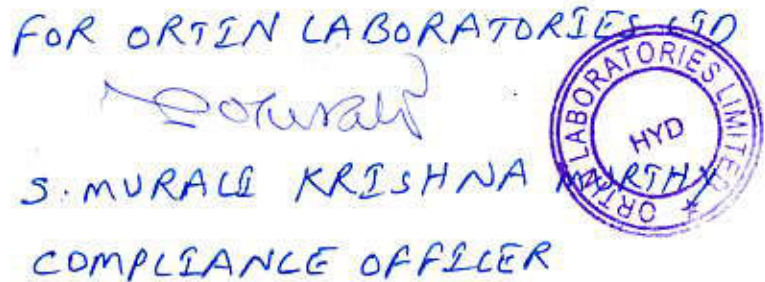 FOR ORTIN LABORATORIES LTD
S. MURALI KRISHNA MURTHY
COMPLIANCE OFFICER
ORTIN LABORATORIES LIMITED
HYD